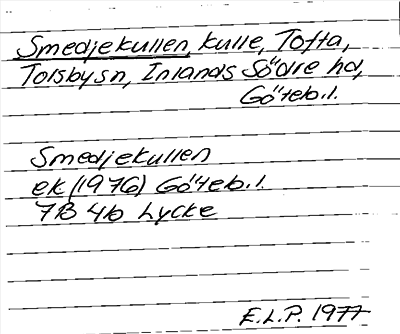 Smedjekullen, kulle, Tofta,
Torsbysn, Inlands Södre hd,
Göteb.l.
Smedjekullen
ek (1976) Göteb.l.
7B 4b Lycke
E.L.P. 1977